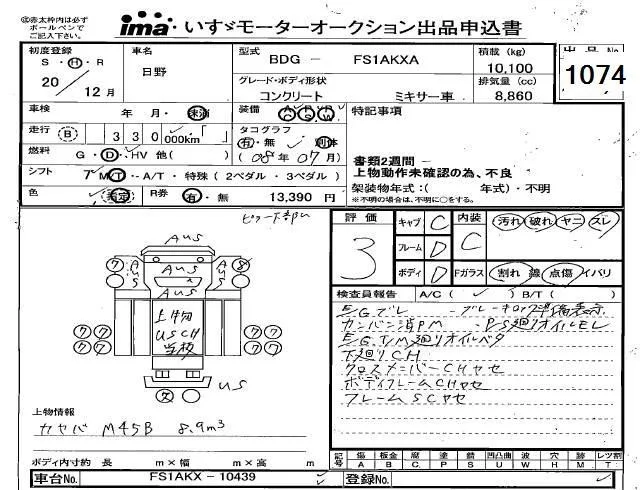 ㊟赤太枠内は必ずボールペンでご記入ください。
ima いすゞモーターオークション出品申込書
初度登録 S・H・R 20/12月
車名 日野
型式 BDG － FS1AKXA
積載 (kg) 10,100
出品No. 1074
グレード・ボディ形状 コンクリート ミキサー車
排気量 (cc) 8,860
車検 年 月・
装備 A/C P/S P/W
特記事項
走行 B 330 000km「 」
タコグラフ 有・無 (08年07月)
燃料 G・D・HV 他( )
シフト 7 M/T・A/T・特殊(2ペダル・3ペダル)
書類2週間－
上物動作未確認の為、不良
架装物年式:( 年式)・不明
※不明の場合は、不明に○をする。
色
R券 有・無 13,390 円
評価 3
キャブ C
フレーム D
ボディ D
内装 C
汚れ 破れ ヤニ スレ
Fガラス 割れ 線 点傷 イバリ
AUS
AUS
AUS
AUS
AUS
AUS
7 8
上物
USCH
7 7 7 7
US
検査員報告 A/C( ) B/T( )
E/Gブレ
カンバン消PM P/S廻りオイルEL
E/G T/M廻りオイルベタ
下廻りCH
クロスメンバーCHヤセ
ボディフレームCHヤセ
フレームSCヤセ
上物情報
カヤバ M45B 8.9m³
ボディ内寸約 長 m×幅 m×高 m
記号 傷A 板金B 腐C 塗P 錆S 凹凸曲U 波W 穴H 跡M レツ割T
車台No. FS1AKX－10439
登録No.